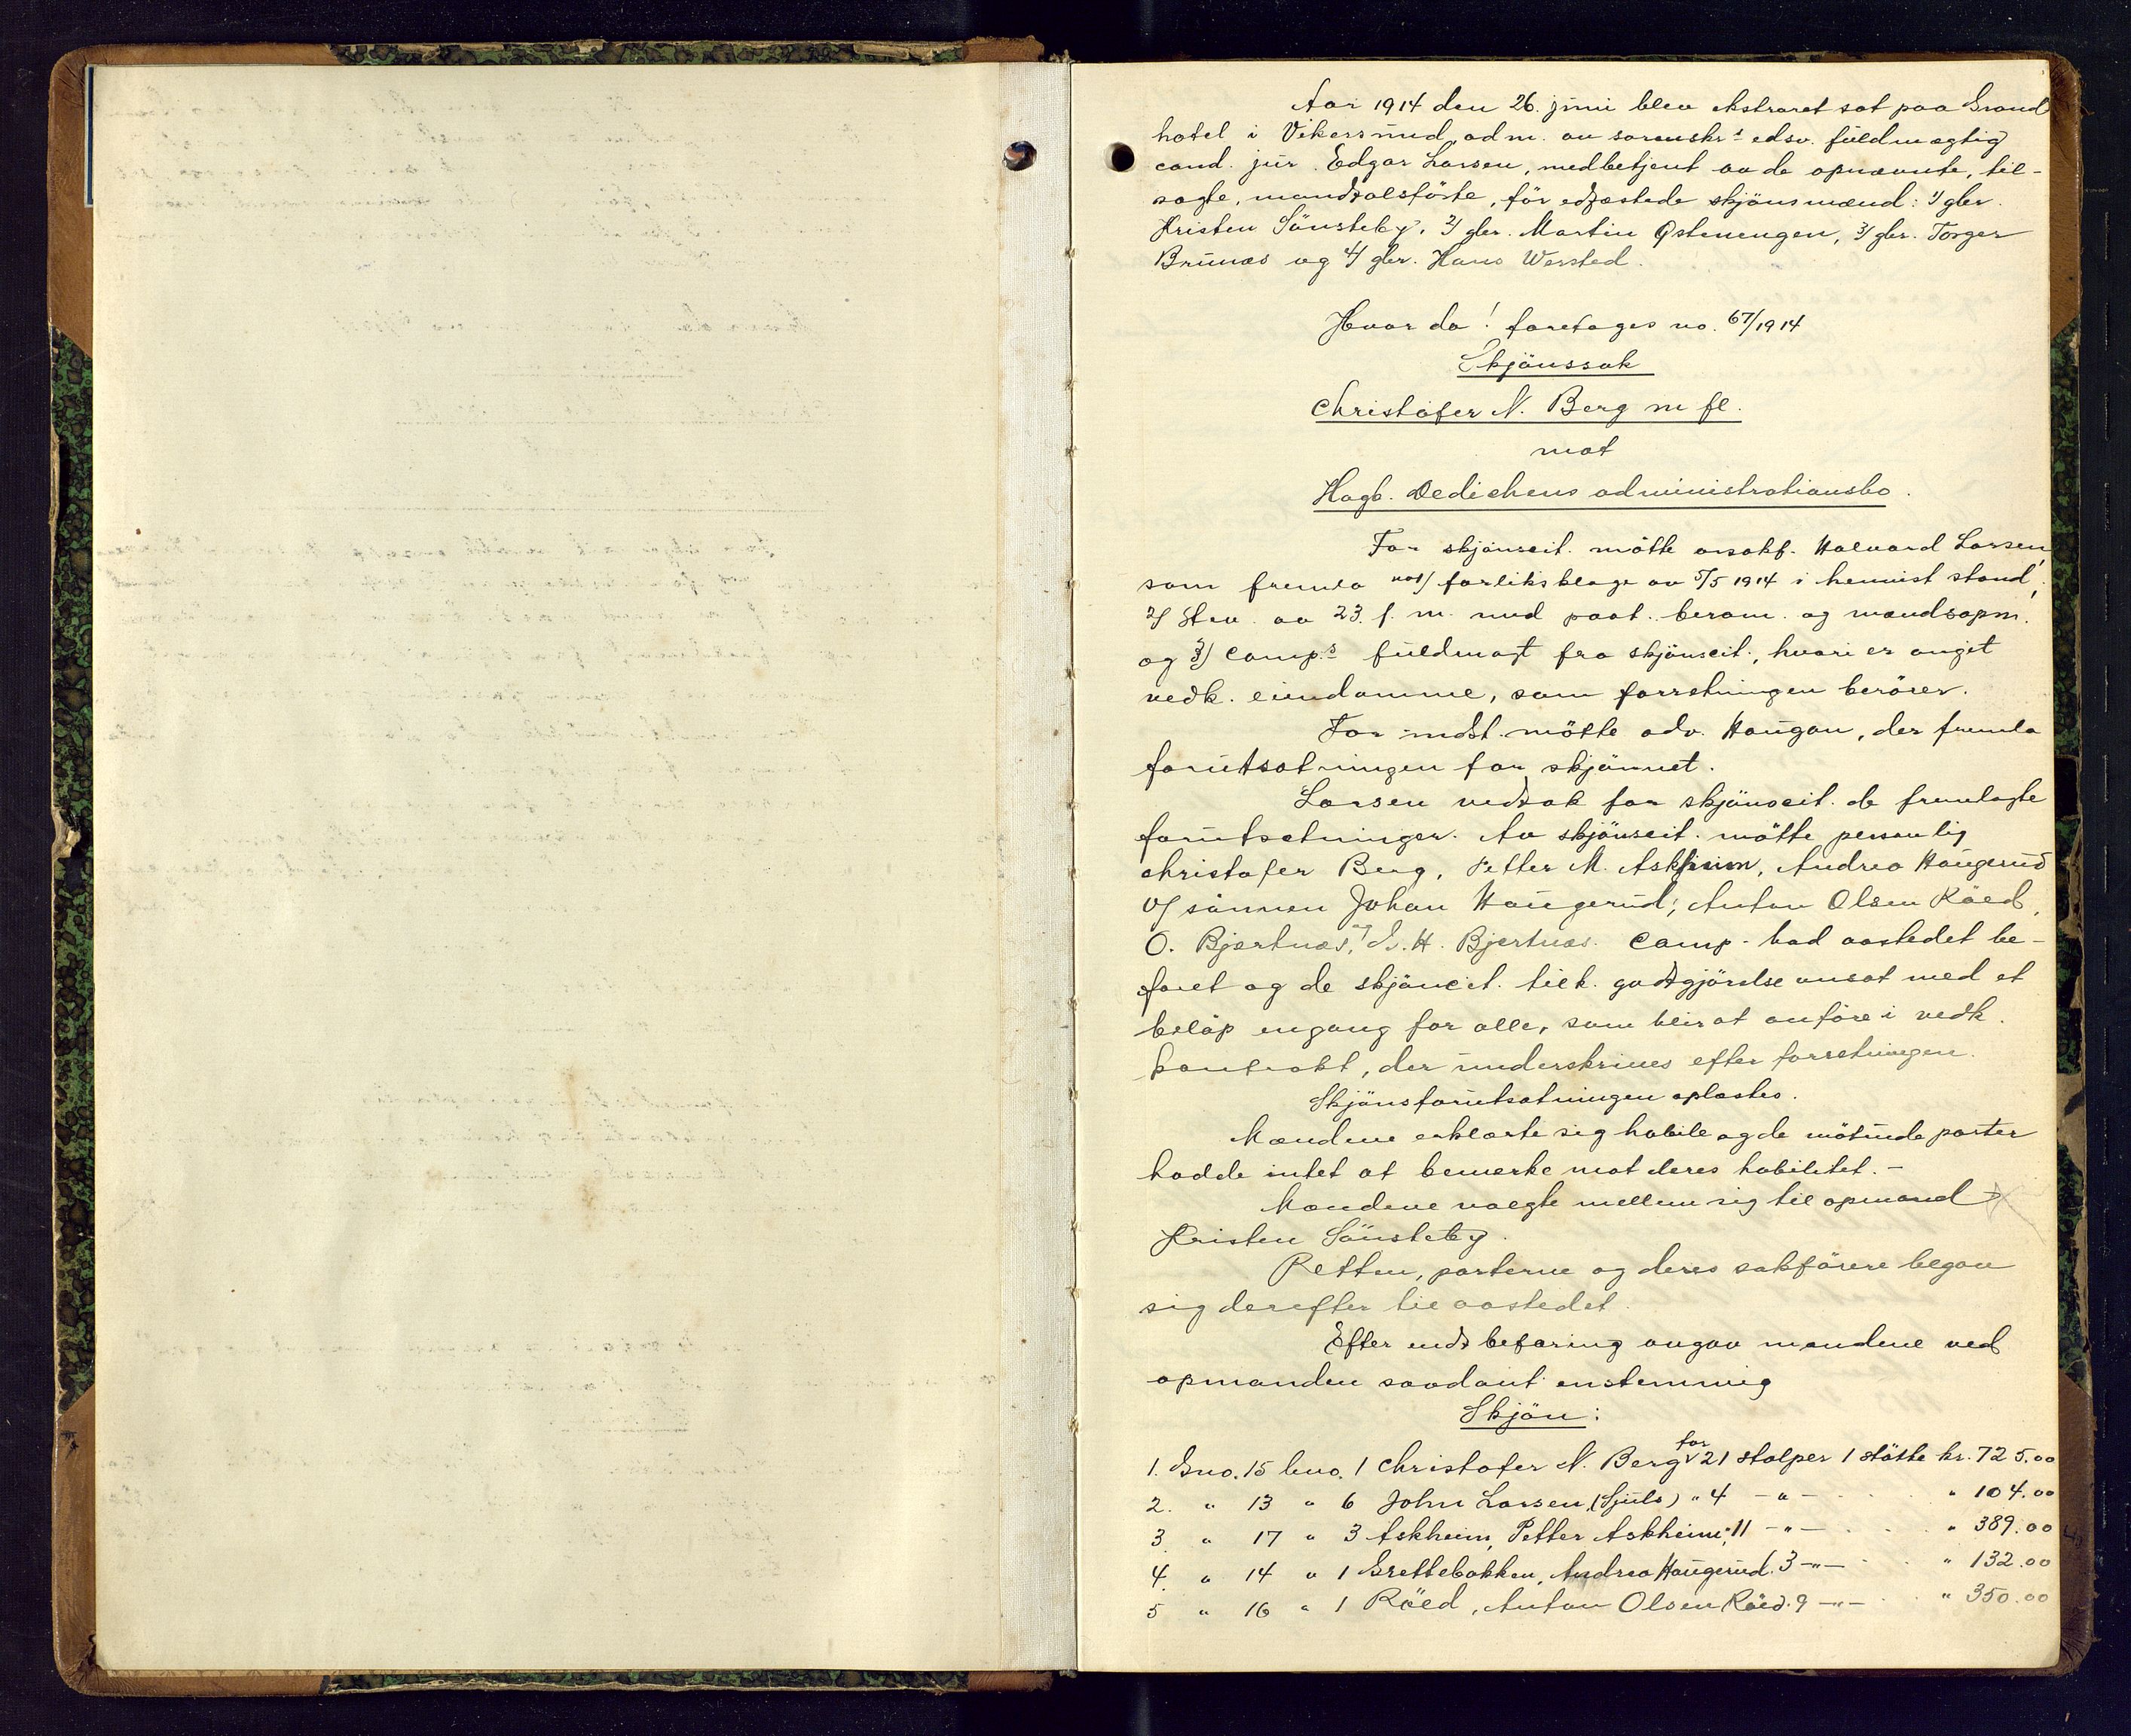 Aar 1914 den 26. juni blev ekstraret sat paa Grand
hotel i Vikersund, adm. av sorenskrs edsv. fuldmægtig
cand. jur. Edgar Larsen, medbetjent av de opnævnte, til-
sagte, mandtalsførte, før edfæstede skjönsmænd: 1/ gbr.
Kristen Sönsteby, 2/ gbr. Martin Østenengen, 3/ gbr. Torger
Brunæs og 4/ gbr. Hans Wersted.
Hvor da! foretages no. 67/1914
Skjönssak
Christofer N. Berg m fl.
mot
Hagb. Dedichens administrationsbo.
For skjönscit. mötte orsakf. Halvard Larsen,
som fremla no 1/ forliksklage av 5/5 1914 i hermist stand,
2/ Stev. av 23. f. m. med paat. beram. og mændsopn.
og 3/ Comp.s fuldmagt fra skjönscit., hvori er angit
vedk. eiendomme, som forretningen berörer.
For indst. mötte adv. Haugan, der fremla
forutsætningen for skjönnet.
Larsen vedtok for skjönscit. de fremlagte
forutsætninger. Av skjönscit. mötte personlig
Christofer Berg, Petter M. Askheim, Andrea Haugerud
v/ sönnen Johan Haugerud, Anton Olsen Röed,
O. Bjertnæs, og E. H. Bjertnæs. Comp. bad aastedet be-
faret og de skjönscit. tilk. godtgjörelse ansat med et
belöp engang for alle, som blir at anföre i vedk.
kontrakt, der underskrives efter forretningen.
Skjönsforutsætningen oplæstes.
Mændene erklærte sig habile og de mötende parter
hadde intet at bemerke mot deres habilitet. -
Mændene valgte mellem sig til opmand
Kristen Sönsteby.
Retten, parterne og deres sakförere begav
sig derefter til aastedet.
Efter endt befaring avgav mændene ved
opmanden saadant enstemmig
Skjön:
1. Gno. 15 bno. 1 Christofer N. Berg for 21 stolper 1 stötte kr. 725.00
2. " 13 " 6 John Larsen, (Sjuls) " 4 - " - " 104.00
3. " 17 " 3 Askheim, Petter Askheim " 11 - " - " 389.00
4. " 14 " 1 Grettebakken, Andrea Haugerud. 3 - " - " 132.00
5 " 16 " 1 Röed, Anton Olsen Röed. 9 - " - " 350.00